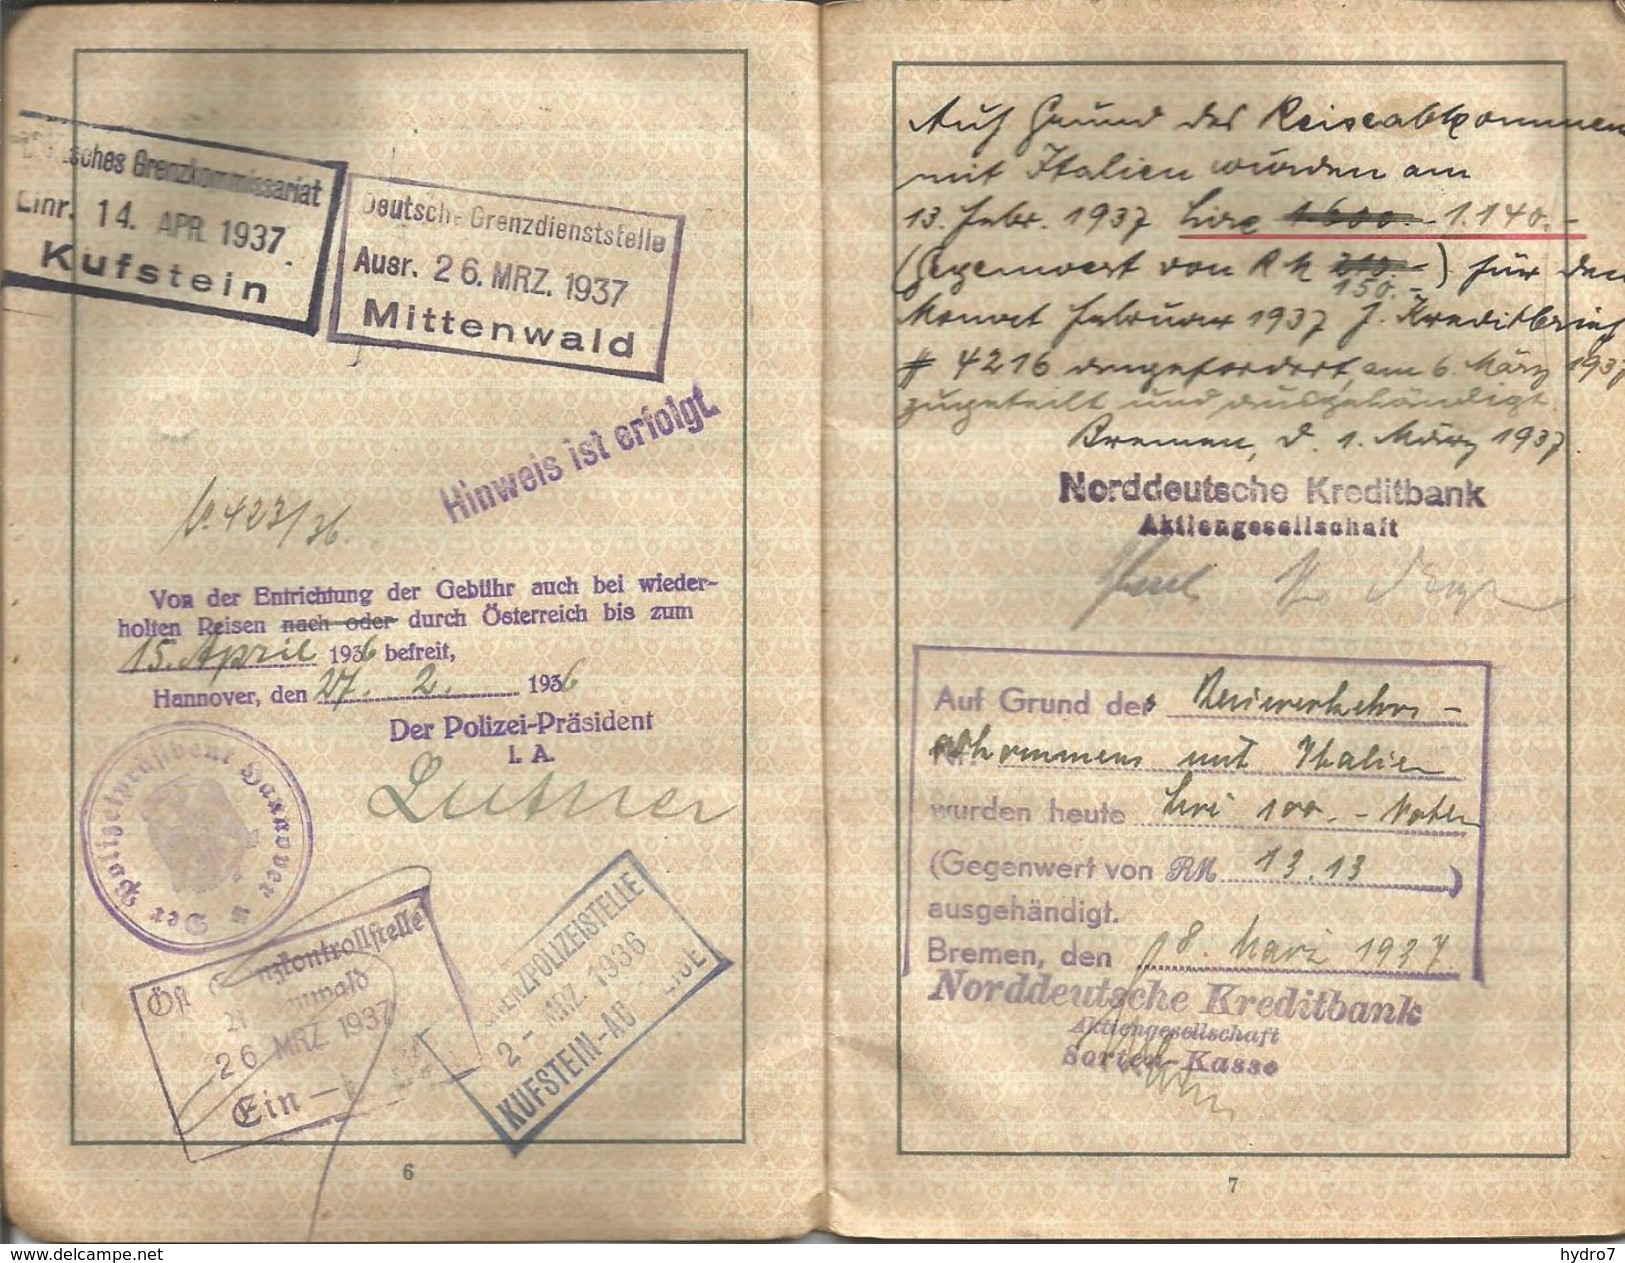 Deutsches Grenzkommissariat
Einr. 14. APR. 1937.
Kufstein
Deutsche Grenzdienststelle
Ausr. 26. MRZ. 1937
Mittenwald
Hinweis ist erfolgt.
423/36.
Von der Entrichtung der Gebühr auch bei wieder-
holten Reisen nach oder durch Österreich bis zum
15. April 1936 befreit,
Hannover, den 27. 2. 1936
Der Polizei-Präsident
I. A.
Der Polizeipräsident Hannover
GRENZPOLIZEISTELLE
2 - MRZ. 1936
KUFSTEIN-
26 MRZ 1937
Ein -
6
Auf Grund des Reiseabkommen
mit Italien wurden am
13. Febr. 1937 Lire 1600.- 1.140.-
(Gegenwert von RM 215.-) für den
150.-
Monat Februar 1937 f. Kreditbrief
# 4216 angefordert, am 6. März 1937
zugeteilt und ausgehändigt.
Bremen, d. 1. März 1937.
Norddeutsche Kreditbank
Aktiengesellschaft
Auf Grund des Reiseverkehrs-
abkommens mit Italien
wurden heute Lire 100.- Noten
(Gegenwert von RM 13.13)
ausgehändigt.
Bremen, den 8. März 1937.
Norddeutsche Kreditbank
Aktiengesellschaft
Sorten-Kasse
7
delcampe.net
hydro7